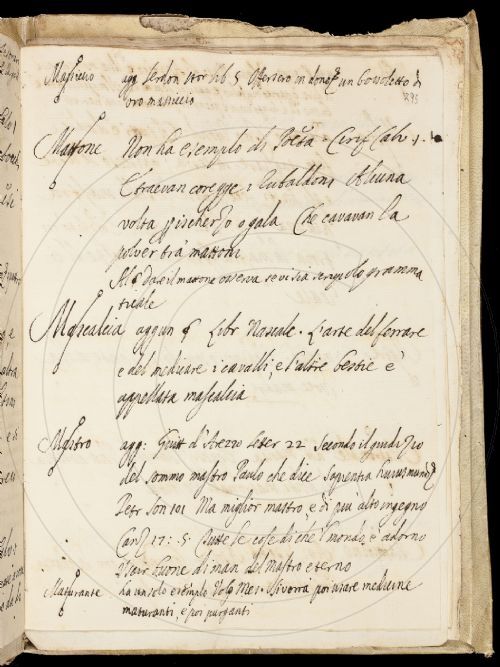 Massiccio agg Serdon stor lib. 5 Offersero in dono un bossoletto di
oro massiccio
Mattone Non ha esempio di Poeta. Ciriff Calv. 1.
E traevan coregge i Eubaldoni Alcuna
volta p ischerzo o gala Che cavavan la
polver tra mattoni
Dare il mattone osserva se vi sia scrupolo gramma
ticale
Mascalcia aggiun Libr Mascale. L'arte del ferrare
e del medicare i cavalli, e l'altre bestie e'
appellata mascalcia
Mastro agg: Guitt d'Arezzo letter 22 Secondo il giudizio
del sommo mastro Paulo che dice Sapientia huius mundi
Petr son 101 Ma miglior mastro, e di piu alto ingegno
Canz 17: 5. Tutte le cose di che 'l mondo è adorno
Uscir buone di man del Mastro eterno
Maturante ha un solo esempio Volg Mes. Si vorrà poi usare medicine
maturanti, e poi purganti